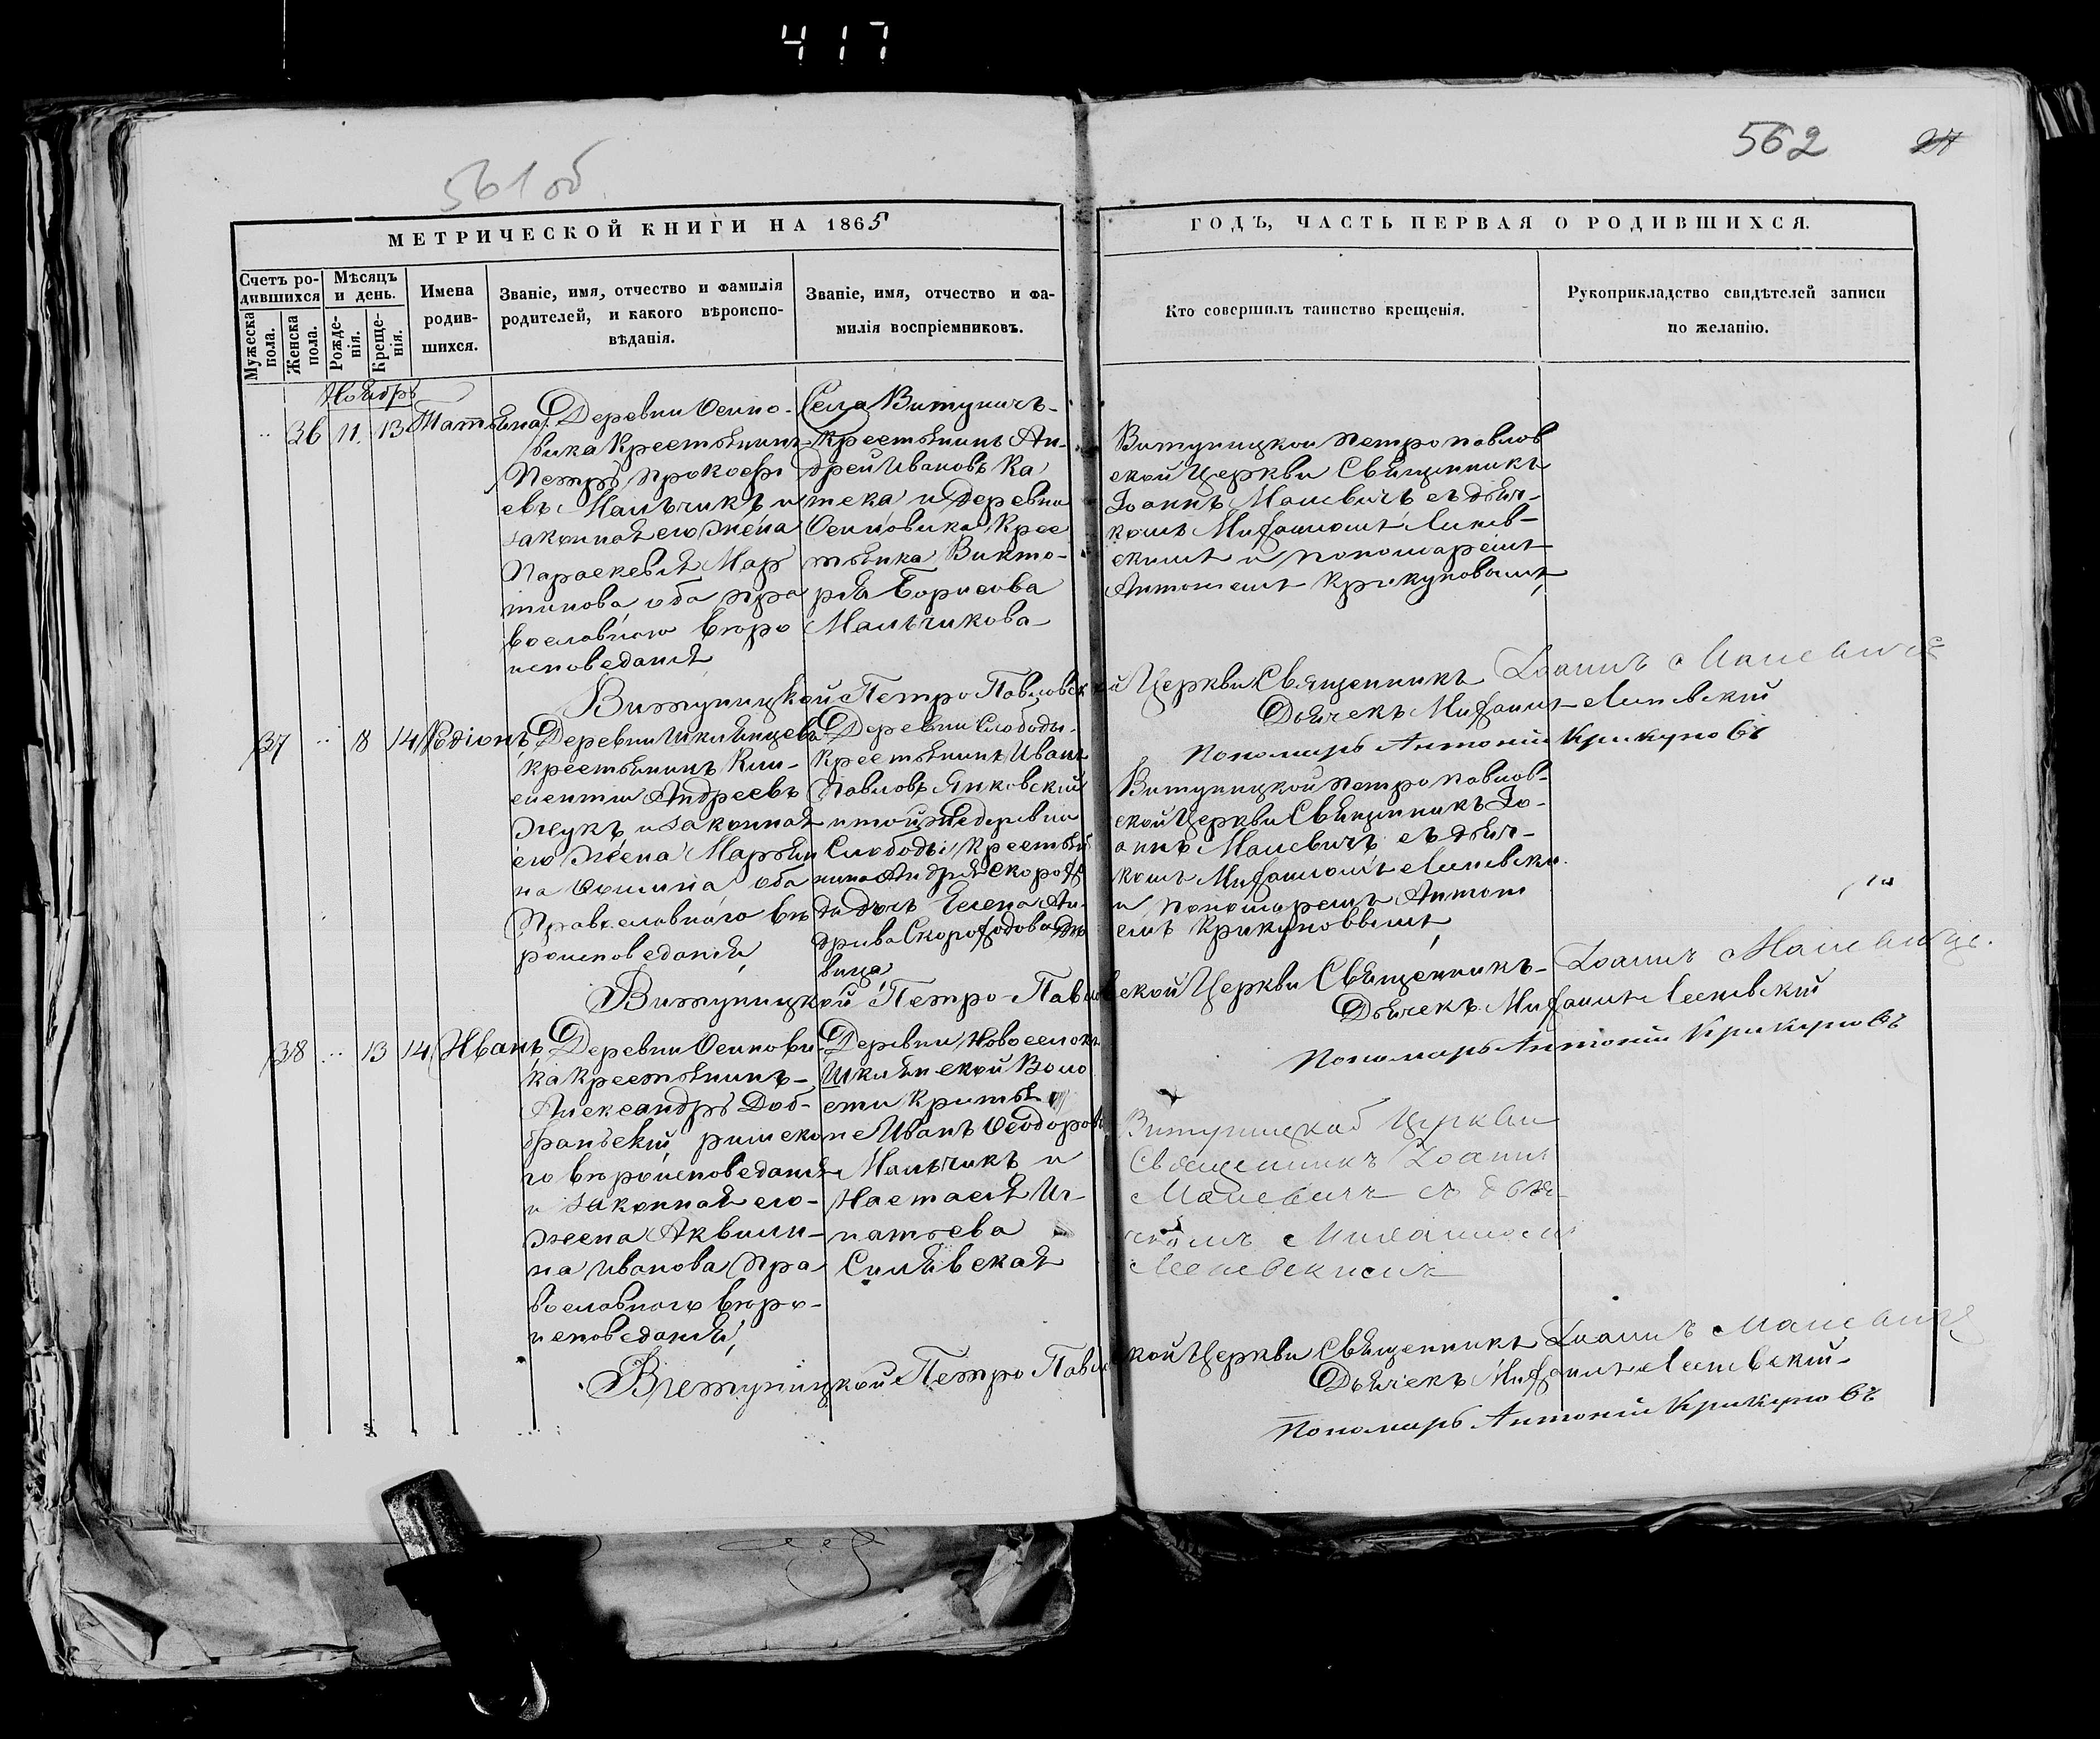 417
561 об
562
27
МЕТРИЧЕСКОЙ КНИГИ НА 1865
ГОДЪ, ЧАСТЬ ПЕРВАЯ О РОДИВШИХСЯ.
Счетъ ро-
дившихся
Мужеска
пола.
Женска
пола.
Мѣсяцъ
и день.
Рожде-
нія.
Креще-
нія.
Имена
родив-
шихся.
Званіе, имя, отчество и фамилія
родителей, и какого вѣроиспо-
вѣданія.
Званіе, имя, отчество и фа-
милія воспріемниковъ.
Кто совершилъ таинство крещенія.
Рукоприкладство свидѣтелей записи
по желанію.
Ноябрь
36 11. 13 Татьяна
Деревни Осипо-
вика Крестьянинъ
Петръ Прокофи
евъ Мальчикъ и
законная его жена
Параскевія Мар
тинова оба пра
вославного вѣро
исповеданія
Села Витуничъ
крестьянинъ Ан-
дрей Ивановъ Ка
тека и деревни
Осиповика Крес
тьянка Викто-
рія Борисова
Мальчикова
Витуницкой Петропавлов
ской Церкви Священникъ
Іоаннъ Малевичъ съ дьяч-
комъ Мифаиломъ Линев-
скимъ и пономаремъ
Антониемъ Крикуновымъ
Витуницкой Петро Павловской Церкви Священникъ Іоаннъ Малевичъ
Дьячекъ Мифаилъ Линевскій
Пономарь Антоній Крикуновъ
37 18 14 Родіонъ
Деревни Шклянцевъ
крестьянинъ Кли-
ментий Андреевъ
Жукъ и законная
его жена Марьян
на Фомина оба
Православного вѣ
роисповеданія
Деревни Слободы
крестьянинъ Иванъ
Павловъ Янковский
и той же деревни
Слободы крестья
нина Андрея Скорофо
да дочь Елена Ан-
дреева Скорофодова дѣ
вица
Витуницкой Петропавлов-
ской Церкви Священникъ Іо-
аннъ Малевичъ съ дьяч-
комъ Мифаиломъ Линевски
и пономаремъ Антони
емъ Крикуновымъ
Витуницкой Петро-Павловской Церкви Священникъ Іоаннъ Малевичъ.
Дьячекъ Мифаилъ Линевскій
Пономарь Антоній Крикуновъ
38 13 14 Иванъ
Деревни Осипови
ка крестьянинъ
Александръ Доб-
браньскій римско
го вѣроисповеданія
и законная его
жена Аквили-
на Иванова пра
вославного вѣро-
исповеданія
Деревни Новоселокъ
Шклянской Воло
сти
Иванъ Феодоровъ
Мальчикъ и
Настасія Иг-
натьева
Силявская
Витуницкой Церкви
Священникъ Іоаннъ
Малевичъ съ дья-
чкомъ Михаиломъ
Линевскимъ
Витуницкой Петро Павловской Церкви Священникъ Іоаннъ Малевичъ
Дьячекъ Мифаилъ Линевскій
Пономарь Антоній Крикуновъ